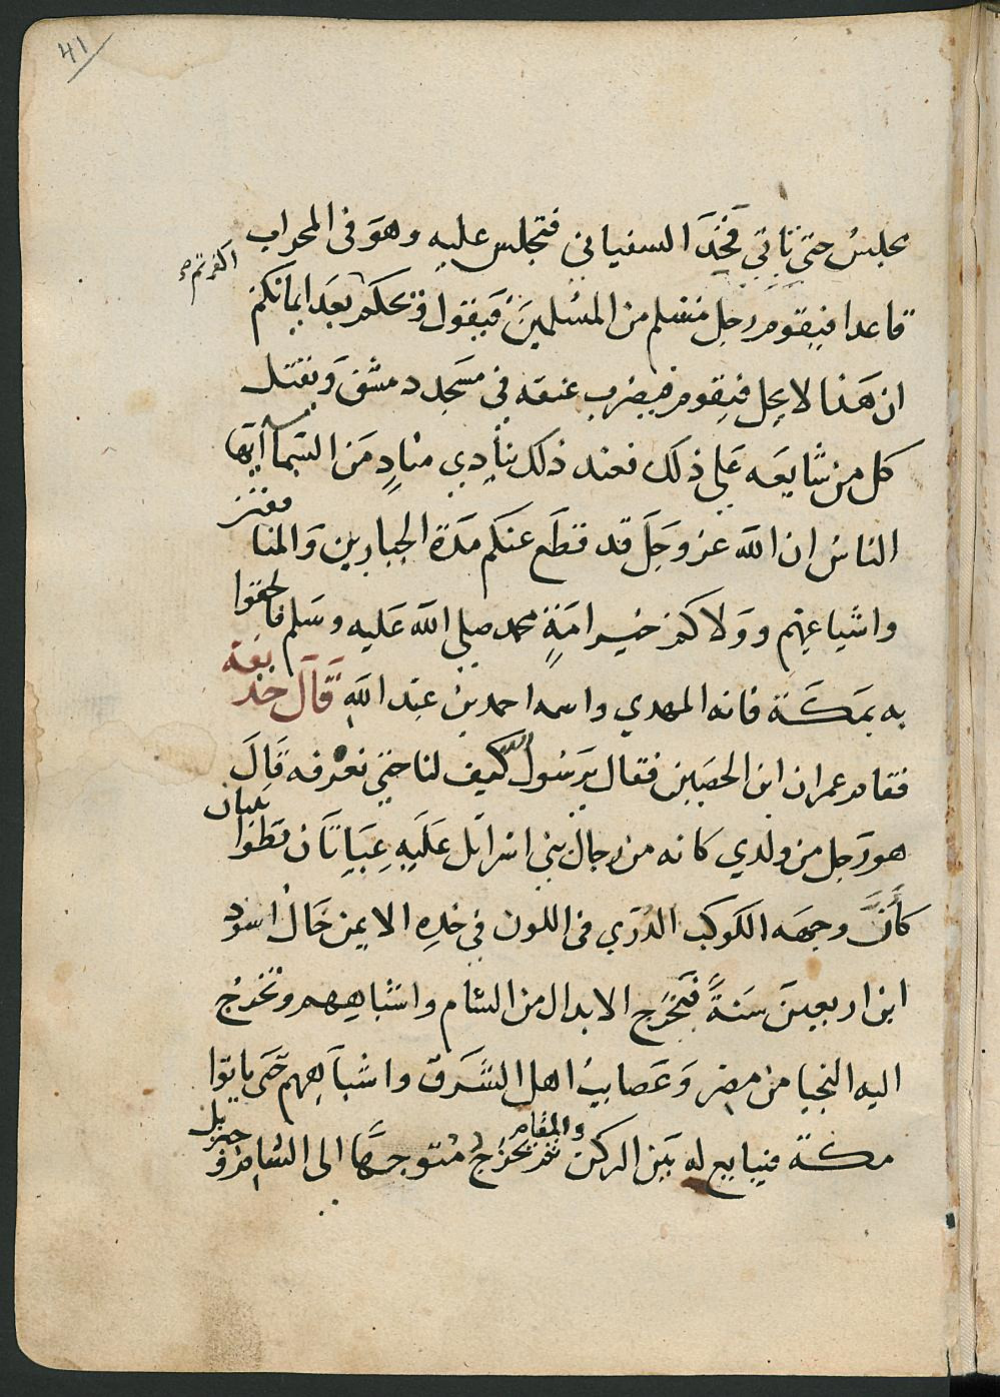 41
مجلس حتى تاتي فَخْذَ السفياني فتجلس عليه وهو فى المحراب
قاعدا فيقوم رجل مسلم من المسلمين فيقول ويحكم اكفرتم بعد ايمانكم
ان هذا لا يحل فيقوم فيضرب عنقه في مسجد دمشق ويقتل
كل من شايعه على ذلك فعند ذلك ينادي منادٍ من السماء ايها
الناس ان الله عز وجل قد قطع عنكم مدة الجبارين والمنافقين
واشياعهم وولاكم خير امة محمد صلى الله عليه وسلم فالحقوا
به بمكة فانه المهدي واسمه احمد بن عبد الله قال حذيفة
فقام عمران ابن الحصين فقال يرسول الله كيف لنا حتى نعرفه قال
هو رجل من ولدي كانه من رجال بني اسرائل عليه عبايتان قطوانيتان
كأن وجهه الكوكب الدري فى اللون في خده الايمن خال اسود
ابن اربعين سنة فيخرج الابدال من الشام واشباههم وتخرج
اليه النجبا من مصر وعصايب اهل الشرق واشباههم حتى ياتوا
مكة فيبايع له بين الركن والمقام ثم يخرج متوجها الى الشام وجبريل